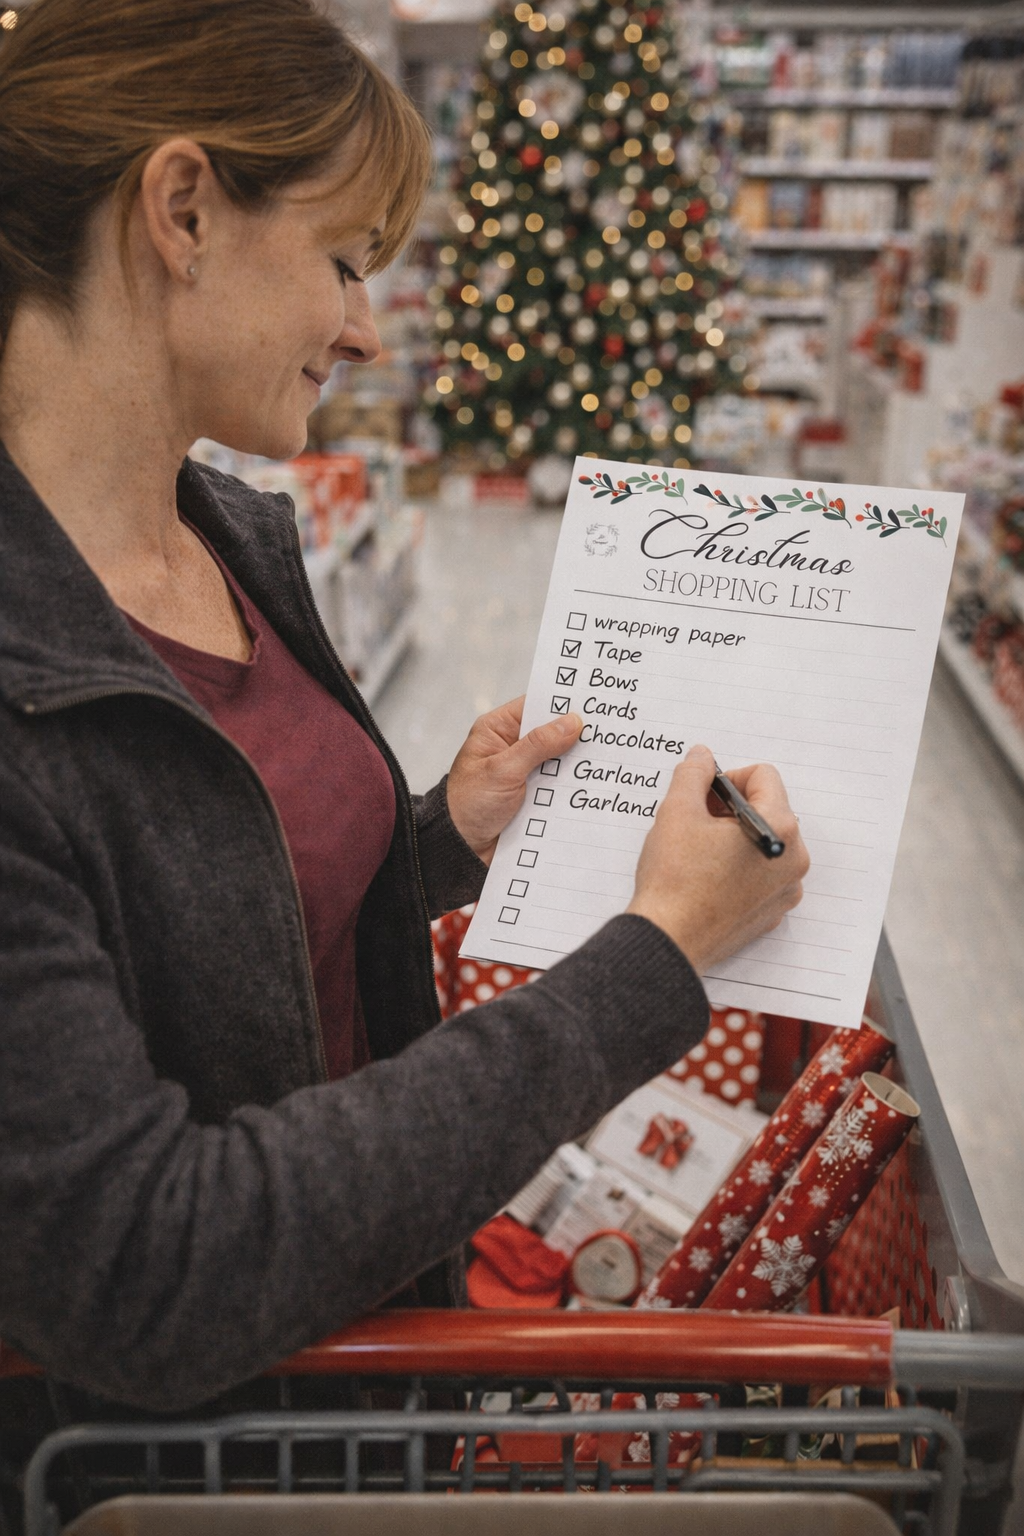 Christmas
SHOPPING LIST
wrapping paper
Tape
Bows
Cards
Chocolates
Garland
Garland